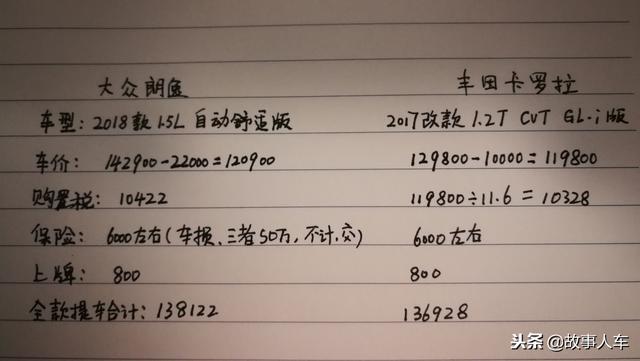 大众朗逸 丰田卡罗拉
车型: 2018款 1.5L 自动舒适版 2017改款 1.2T CVT GL-i版
车价: 142900-22000=120900 129800-10000=119800
购置税: 10422 119800÷11.6=10328
保险: 6000左右(车损、三者50万,不计,交) 6000左右
上牌: 800 800
全款提车合计: 138122 136928
头条@故事人车